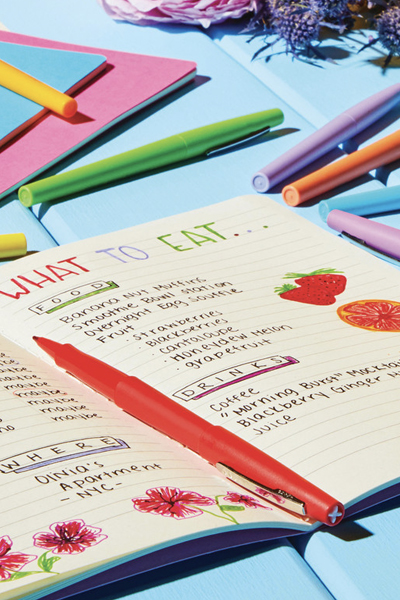 WHAT TO EAT...
FOOD
Banana Nut Muffins
Smoothie Bowl Station
Overnight Egg Souffle
Fruit
- Strawberries
- Blackberries
- cantaloupe
- Honeydew Melon
- grapefruit
DRINKS
Coffee
"Morning Burst" Mockta
Blackberry Ginger
Juice
maybe
maybe
maybe
maybe
maybe
maybe
WHERE
Olivia's
Apartment
- NYC -